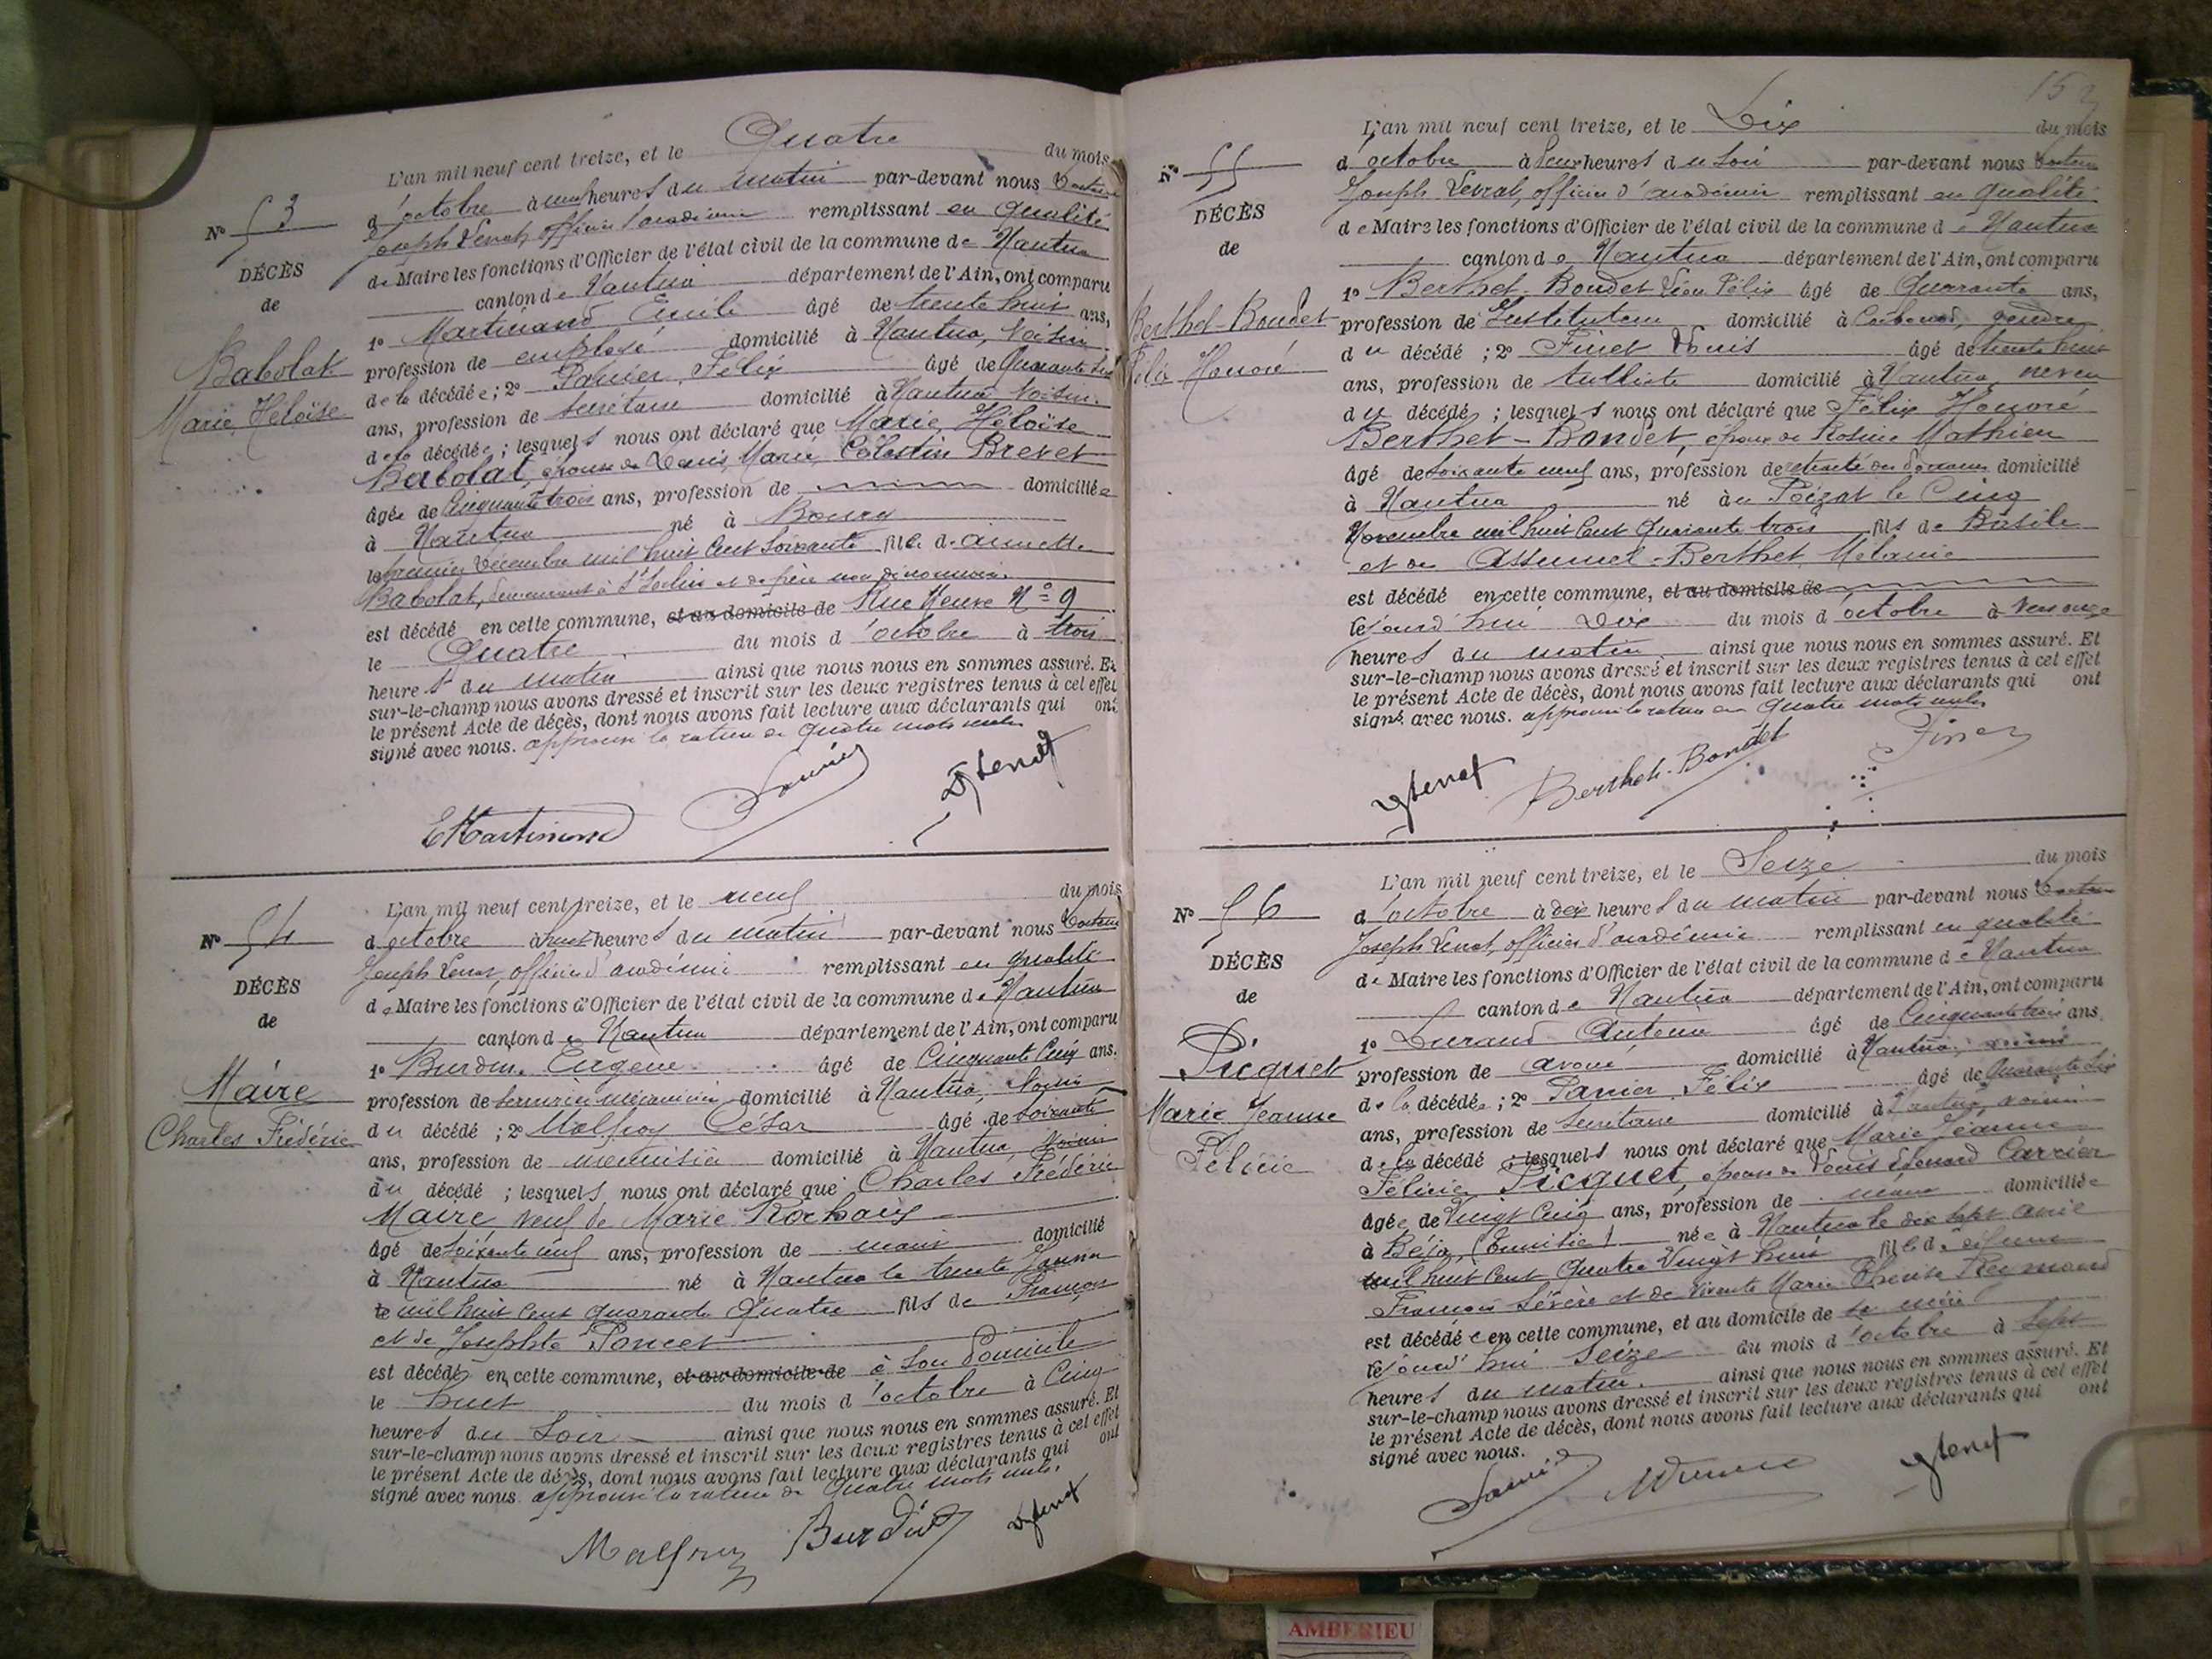 L'an mil neuf cent treize, et le Quatre du mois
d'octobre à neuf heures du matin par-devant nous Docteur
Joseph Verrat, officier d'académie remplissant en qualité
de Maire les fonctions d'Officier de l'état civil de la commune de Nantua
canton de Nantua département de l'Ain, ont comparu
1º Martinand Emile âgé de trente huit ans,
profession de employé domicilié à Nantua, voisin
de la décédée; 2º Panier, Félix âgé de Quarante six
ans, profession de secrétaire domicilié à Nantua voisin
de la décédée; lesquels nous ont déclaré que Marie, Héloïse
Babolat, épouse de Denis, Marie, Célestin Brevet
âgée de Cinquante trois ans, profession de domiciliée
à Nantua né à Bourg
le premier Décembre mil huit cent soixante fille de annette
Babolat, demeurant à St Sorlin et de père non dénommé.
est décédé en cette commune, et au domicile de Rue Neuve Nº 9
le Quatre du mois d'octobre à trois
heures du matin ainsi que nous nous en sommes assuré. Et
sur-le-champ nous avons dressé et inscrit sur les deux registres tenus à cet effet
le présent Acte de décès, dont nous avons fait lecture aux déclarants qui ont
signé avec nous. approuvé la rature de quatre mots nuls
Nº 53
DÉCÈS
de
Babolat
Marie, Héloïse
EMartinand Panier
L'an mil neuf cent treize, et le neuf du mois
d'octobre à huit heures du matin par-devant nous Docteur
Joseph Verrat, officier d'académie remplissant en qualité
de Maire les fonctions d'Officier de l'état civil de la commune de Nantua
canton de Nantua département de l'Ain, ont comparu
1º Burdin Eugène âgé de Cinquante Cinq ans.
profession de serrurier mécanicien domicilié à Nantua, voisin
du décédé; 2º Malfroy César âgé de soixante
ans, profession de menuisier domicilié à Nantua, voisin
du décédé; lesquels nous ont déclaré que Charles Frédéric
Maire veuf de Marie Rochaix
âgé de soixante neuf ans, profession de domicilié
à Nantua né à Nantua le trente Janvier
le mil huit cent quarante Quatre fils de François
et de Josephte Poncet
est décédé en cette commune, et au domicile de à son domicile
le huit du mois d'octobre à Cinq
heures du soir ainsi que nous nous en sommes assuré. Et
sur-le-champ nous avons dressé et inscrit sur les deux registres tenus à cet effet
le présent Acte de décès, dont nous avons fait lecture aux déclarants qui ont
signé avec nous approuvé la rature de Quatre mots nuls.
Nº 54
DÉCÈS
de
Maire
Charles Frédéric
Malfroy Burdin
L'an mil neuf cent treize, et le Dix du mois
d'octobre à deux heures du soir par-devant nous Docteur
Joseph Verrat, officier d'académie remplissant en qualité
de Maire les fonctions d'Officier de l'état civil de la commune de Nantua
canton de Nantua département de l'Ain, ont comparu
1º Berthet-Bondet Léon Félix âgé de Quarante ans,
profession de Instituteur domicilié à Corbonod, gendre
du décédé; 2º Finet Louis âgé de trente huit
ans, profession de tulliste domicilié à Nantua neveu
du décédé; lesquels nous ont déclaré que Félix Honoré
Berthet-Bondet, époux de Rosine Mathieu
âgé de soixante neuf ans, profession de retraité des douanes domicilié
à Nantua né à u Poizat le Cinq
Novembre mil huit cent quarante trois fils de Basile
et de Assumel-Berthet Mélanie
est décédé en cette commune, et au domicile de
le jourd'hui Dix du mois d'octobre à vers onze
heures du matin ainsi que nous nous en sommes assuré. Et
sur-le-champ nous avons dressé et inscrit sur les deux registres tenus à cet effet
le présent Acte de décès, dont nous avons fait lecture aux déclarants qui ont
signé avec nous. approuvé la rature de Quatre mots nuls
Nº 55
DÉCÈS
de
Berthet-Bondet
Félix Honoré
Berthet-Bondet Finet
L'an mil neuf cent treize, et le Seize du mois
d'octobre à dix heures du matin par-devant nous Docteur
Joseph Verrat, officier d'académie remplissant en qualité
de Maire les fonctions d'Officier de l'état civil de la commune de Nantua
canton de Nantua département de l'Ain, ont comparu
1º Durand Antonin âgé de Cinquante trois ans.
profession de avoué domicilié à Nantua, voisin
de la décédée; 2º Panier Félix âgé de Quarante six
ans, profession de secrétaire domicilié à Nantua, voisin
de la décédé lesquels nous ont déclaré que Marie Jeanne
Félicie Picquet, épouse de Louis Edouard Carrier
âgée de vingt cinq ans, profession de domiciliée
à Béja (Tunisie) née à Nantua le dix sept avril
le mil huit cent Quatre Vingt huit fille de défunt
François Sévère et de vivante Marie Thérèse Reymond
est décédée en cette commune, et au domicile de sa mère
le jourd'hui Seize du mois d'octobre à sept
heures du matin. ainsi que nous nous en sommes assuré. Et
sur-le-champ nous avons dressé et inscrit sur les deux registres tenus à cet effet
le présent Acte de décès, dont nous avons fait lecture aux déclarants qui ont
signé avec nous.
Nº 56
DÉCÈS
de
Picquet
Marie Jeanne
Félicie
Panier
AMBERIEU